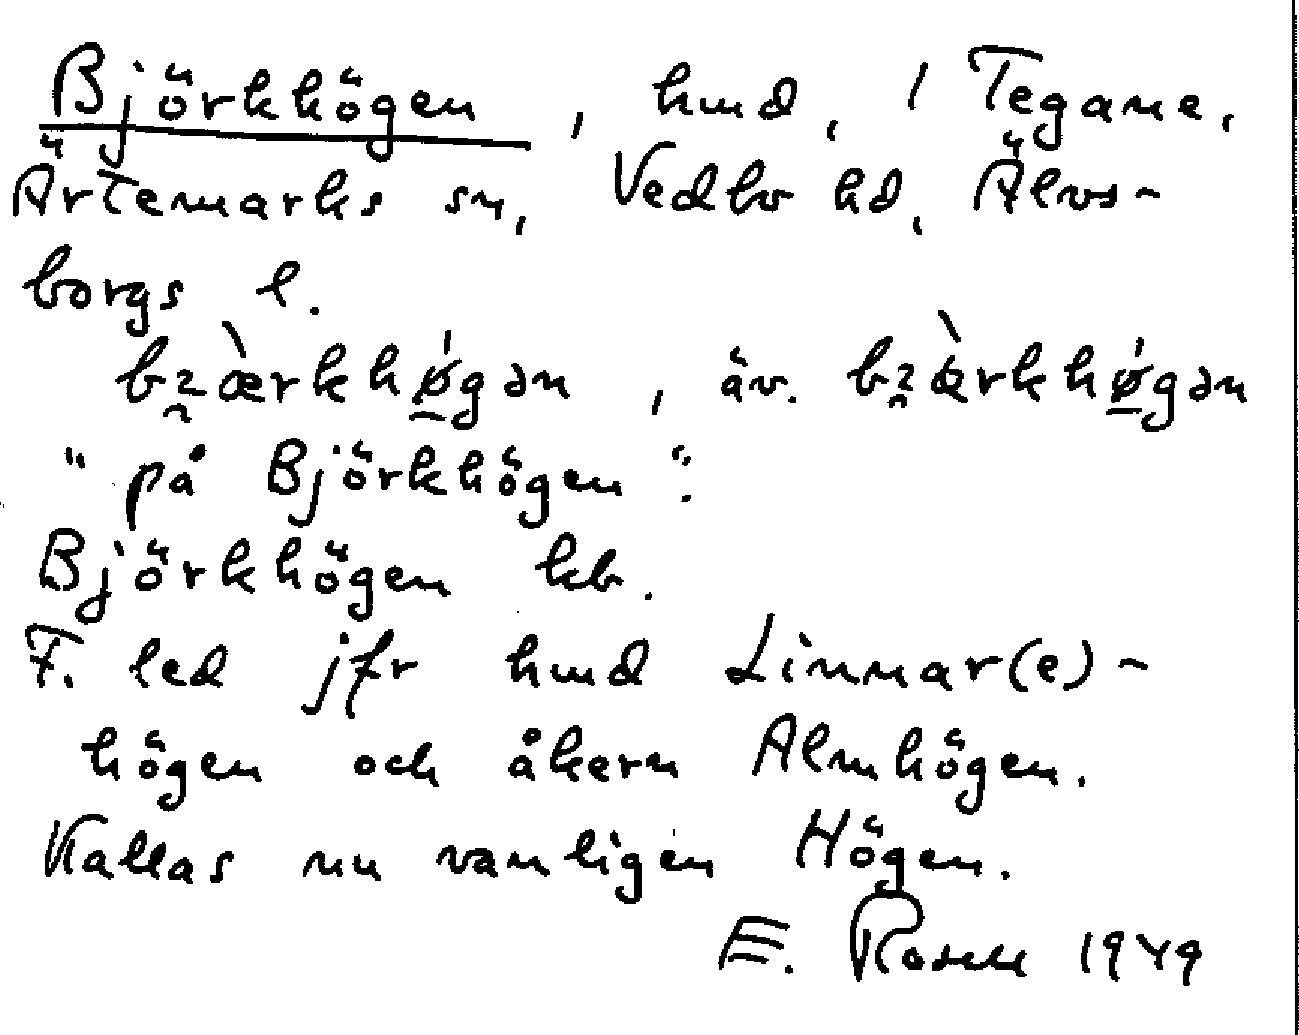 Björkhögen, hmd, 1 Tegane,
Ärtemarks sn, Vedbo hd, Älvs-
borgs l.
bꜿæ̀rkhǿ̲gən, äv. bꜿæ̀rkhǿ̲gən
"på Björkhögen".
Björkhögen kb.
F. led jfr hmd Linnar(e)-
högen och åkern Almhögen.
Kallas nu vanligen Högen.
E. Rosell 1949